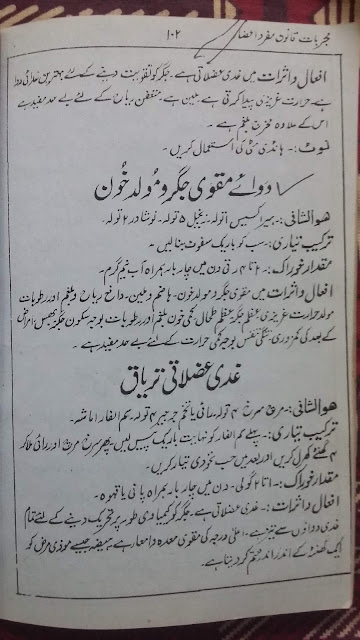 مجربات قانون مفرد اعضاء ۱۰۲
افعال و اثرات میں غدی عضلاتی ہے۔ جگر کو تقویت دینے کے لئے بہترین غذائی دوا
ہے۔ حرارت غریزی پیدا کرتی ہے۔ ملین ہے۔ متعفن ریاح کے لئے بے حد مفید ہے
اس کے علاوہ مخرج بلغم ہے۔
نوٹ:۔ ہانڈی مٹی کی استعمال کریں۔
دوائے مقوی جگر و مولد خون
ھوالشافی:۔ ہیرا کسیس ۱ تولہ۔ زنجبیل ۵ تولہ۔ نوشادر ۲ تولہ۔
ترکیب تیاری:۔ سب کو باریک سفوف بنا لیں۔
مقدار خوراک:۔ ۲ تا ۴ رتی دن میں چار بار ہمراہ آب نیم گرم۔
افعال و اثرات میں مقوی جگر و مولد خون۔ ہاضم و ملین۔ دافع ریاح و بلغم اور رطوبات
مولد حرارت غریزی عظم جگر عظم طحال کمی خون بلغم اور رطوبات بوجہ سکون جگر بھس امراض
کے بعد کی کمزوری۔ تنگی تنفس بوجہ کمی حرارت کے لئے بے حد مفید ہے۔
غدی عضلاتی تریاق
ھوالشافی:۔ مرچ سرخ ۴ تولہ رائی یا تخم جرجیر ۴ تولہ سم الفار ۱ ماشہ۔
ترکیب تیاری:۔ پہلے سم الفار کو نہایت باریک پیس لیں پھر سرخ مرچ اور رائی ملا کر
۴ گھنٹے کھرل کریں اور بعد میں حب نخودی تیار کریں۔
مقدار خوراک:۔ ۱ تا ۲ گولی۔ دن میں چار بار ہمراہ پانی یا قہوہ۔
افعال و اثرات:۔ غدی عضلاتی ہے۔ جگر کو کیمیاوی طور پر تحریک دینے کے لئے تمام
غدی دواؤں سے تیز ہے۔ اعلیٰ درجہ کی مقوی معدہ و امعاء ہے ہیضہ جیسے موذی مرض کو
ایک گھنٹہ کے اندر اندر ختم کر دیتا ہے۔